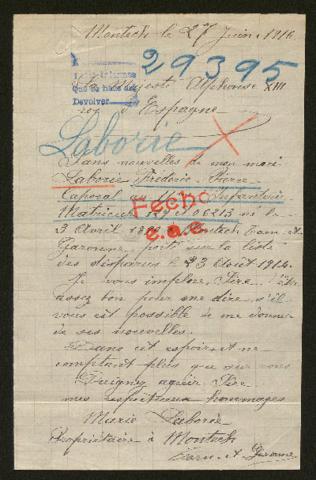 Montech le 27 Juin 1916
29395
Sa Majesté Alphonse XIII
Que se hace des
Devolver
roi d'Espagne
Laborie
Sans nouvelles de mon mari
Laborie Frédéric Pierre
Caporal au Infanterie
Matricule né le
3 Avril à Montech Tarn et
Garonne, porté sur la liste
des disparus le 23 Août 1914.
Fecho
Je vous implore, Sire, d'être
assez bon pour me dire s'il
vous est possible de me donner
de ses nouvelles.
Dans cet espoir, et ne
comptant plus que sur vous
Daignez agréer Sire
mes respectueux hommages
Marie Laborie
Propriétaire à Montech
Tarn et Garonne